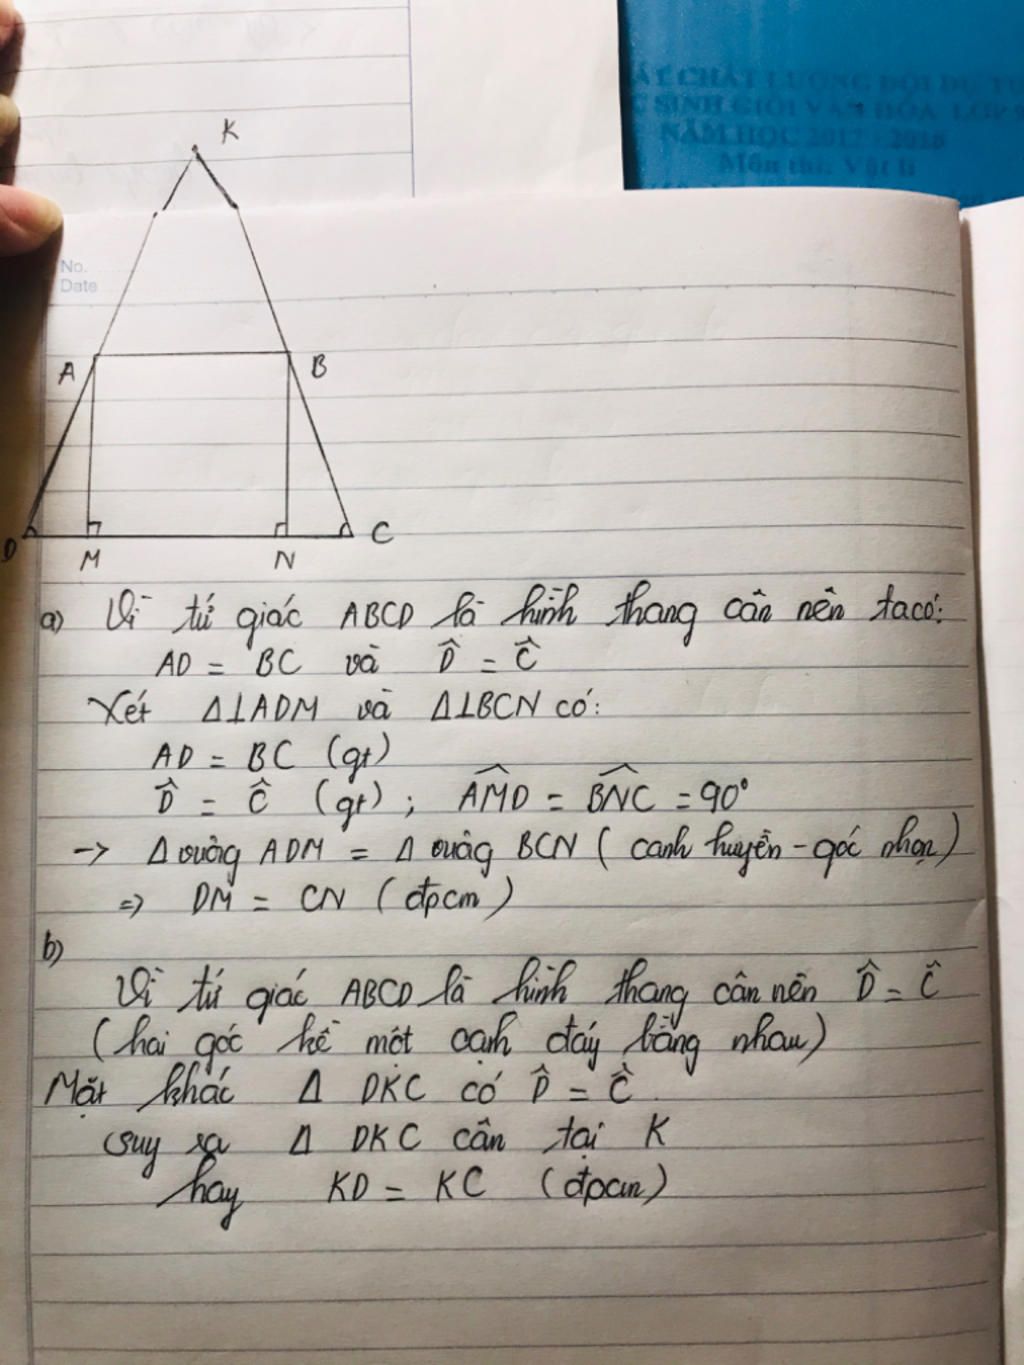 ẤT CHẤT LƯỢNG ĐỘI DỰ T
C SINH GIỎI VĂN HÓA LỚP 9
NĂM HỌC 2017 - 2018
Môn thi: Vật lí
K
No.
Date
A
B
D
M
N
C
a) Vì tứ giác ABCD là hình thang cân nên ta có:
AD = BC và D̂ = Ĉ
Xét Δ⊥ADM và Δ⊥BCN có:
AD = BC (gt)
D̂ = Ĉ (gt) ; AMD̂ = BNĈ = 90°
→ Δ vuông ADM = Δ vuông BCN ( cạnh huyền - góc nhọn )
⇒ DM = CN ( đpcm )
b)
Vì tứ giác ABCD là hình thang cân nên D̂ = Ĉ
( hai góc kề một cạnh đáy bằng nhau )
Mặt khác Δ DKC có D̂ = Ĉ.
suy ra Δ DKC cân tại K
hay KD = KC ( đpcm )